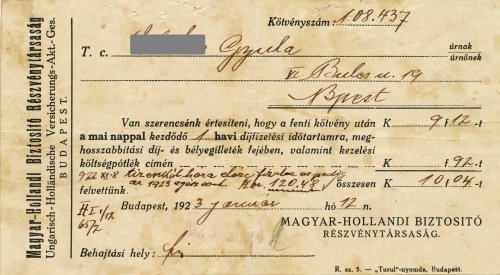 Magyar-Hollandi Biztosító Részvénytársaság
Ungarisch-Holländische Versicherungs-Akt.-Ges.
BUDAPEST.
Kötvényszám: 108.437
T. c. Gyula úrnak
úrnőnek
VI Bulcsu u. 19
Bpest
Van szerencsénk értesíteni, hogy a fenti kötvény után K 9,12
a mai nappal kezdődő 1 havi díjfizetési időtartamra, meg-
hosszabbítási díj- és bélyegilleték fejében, valamint kezelési
költségpótlék címén K 92
az 1923 Kor. 120.48 összesen K 10,04
felvettünk.
Budapest, 1923 januar hó 12 n.
MAGYAR-HOLLANDI BIZTOSITÓ
RÉSZVÉNYTÁRSASÁG.
Behajtási hely:
R. sz. 5. — „Turul"-nyomda, Budapest.